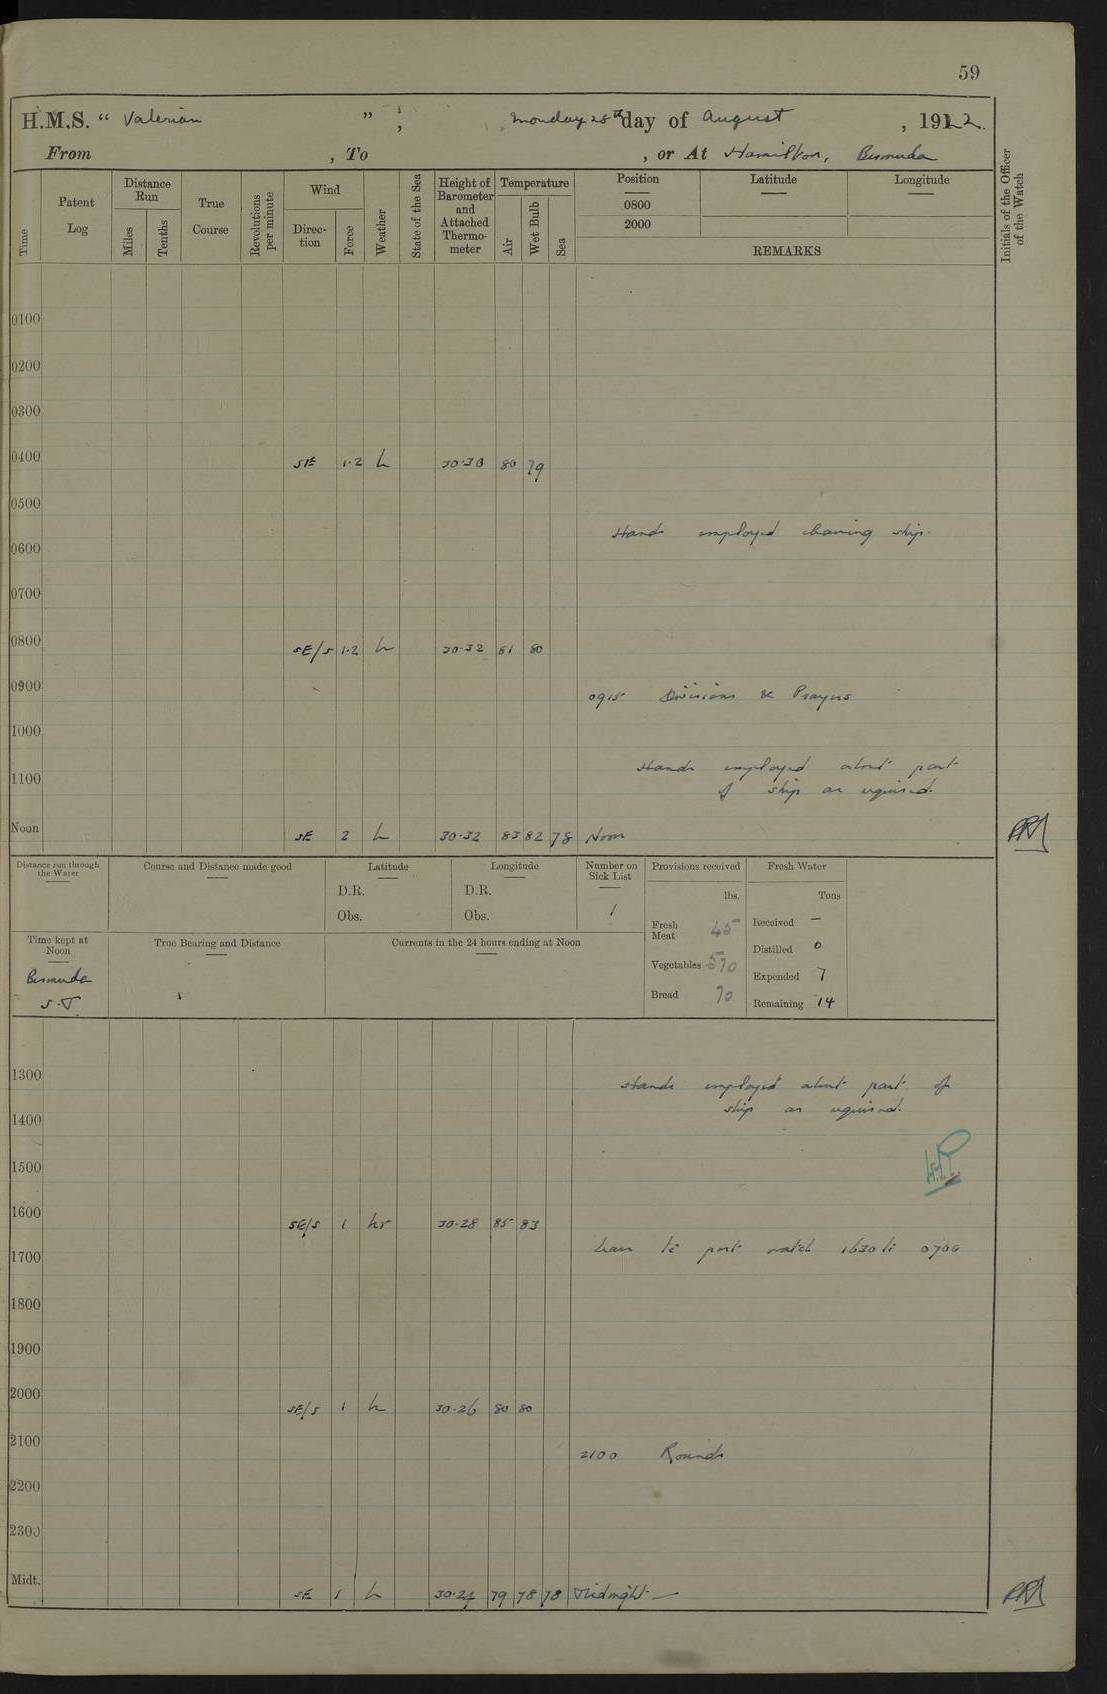 59
H.M.S. “ Valerian ” ; Monday 28th day of August , 1922.
From , To , or At Hamilton, Bermuda
Time
Patent Log
Distance Run
Miles
Tenths
True Course
Revolutions per minute
Wind
Direction
Force
Weather
State of the Sea
Height of Barometer and Attached Thermometer
Temperature
Air
Wet Bulb
Sea
Position
0800
2000
Latitude
Longitude
REMARKS
Initials of the Officer of the Watch
0100
0200
0300
0400 SE 1·2 h 30·30 80 79
0500
Hands employed cleaning ship.
0600
0700
0800 SE/S 1·2 h 30·32 81 80
0900 0915 Divisions & Prayers
1000
Hands employed about part
1100 of ship as required.
Noon SE 2 h 30·32 83 82 78 Noon
Distance run through the Water
Course and Distance made good
Latitude
D.R.
Obs.
Longitude
D.R.
Obs.
Number on Sick List
1
Provisions received
lbs.
Fresh Meat 45
Vegetables 570
Bread 70
Fresh Water
Tons
Received –
Distilled 0
Expended 7
Remaining 14
Time kept at Noon
Bermuda
S.T.
True Bearing and Distance
Currents in the 24 hours ending at Noon
1300 Hands employed about part of
ship as required.
1400
1500
1600 SE/S 1 hr 30·28 85 83
leave to port watch 1630 to 0700
1700
1800
1900
2000 SE/S 1 h 30·26 80 80
2100 2100 Rounds
2200
2300
Midt. SE 1 h 30·24 79 78 78 Midnight